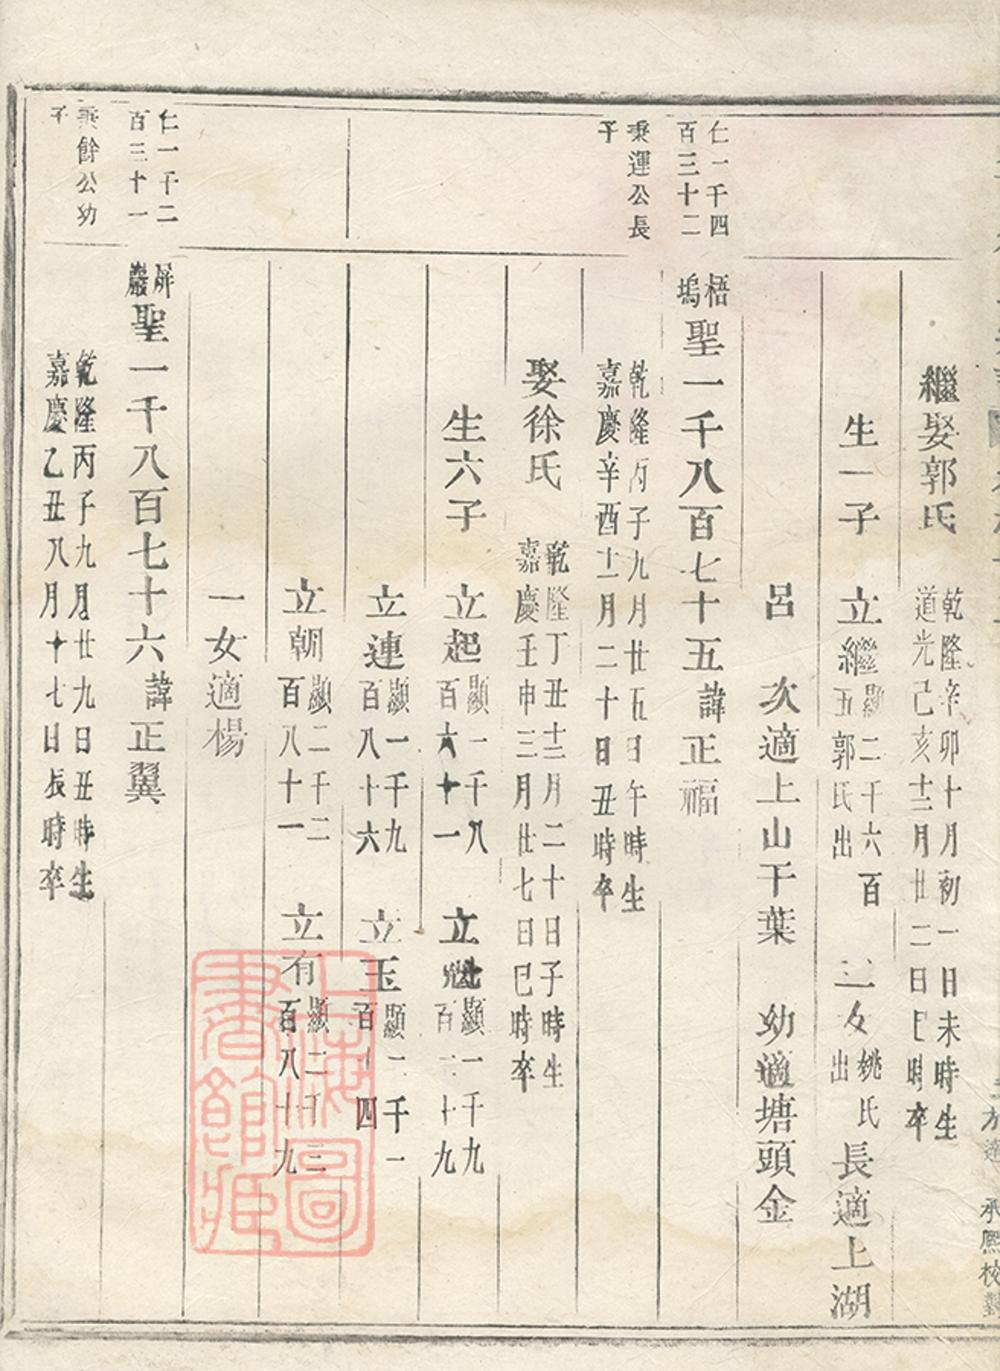 繼娶郭氏 乾隆辛卯十月初一日未時生
道光己亥十二月廿二日巳時卒
生一子 立繼顯二千六百
五郭氏出 三女姚氏
出 長適上湖
呂 次適上山干葉 幼適塘頭金
仁一千四
百三十二
秉運公長
子
梧塢聖一千八百七十五諱正福
乾隆丙子九月廿五日午時生
嘉慶辛酉十二月二十日丑時卒
娶徐氏 乾隆丁丑十二月二十日子時生
嘉慶壬申三月廿七日巳時卒
生六子 立起顯一千八
百六十一 立 顯一千九
百二十九
立連顯一千九
百八十六 立玉顯二千一
百 四
立朝顯二千二
百八十一 立有顯二千三
百八十九
一女適楊
仁一千二
百三十一
秉餘公幼
子
屏巖聖一千八百七十六諱正翼
乾隆丙子九月廿九日丑時生
嘉慶乙丑八月十七日辰時卒
承熙校對
上海圖書館藏